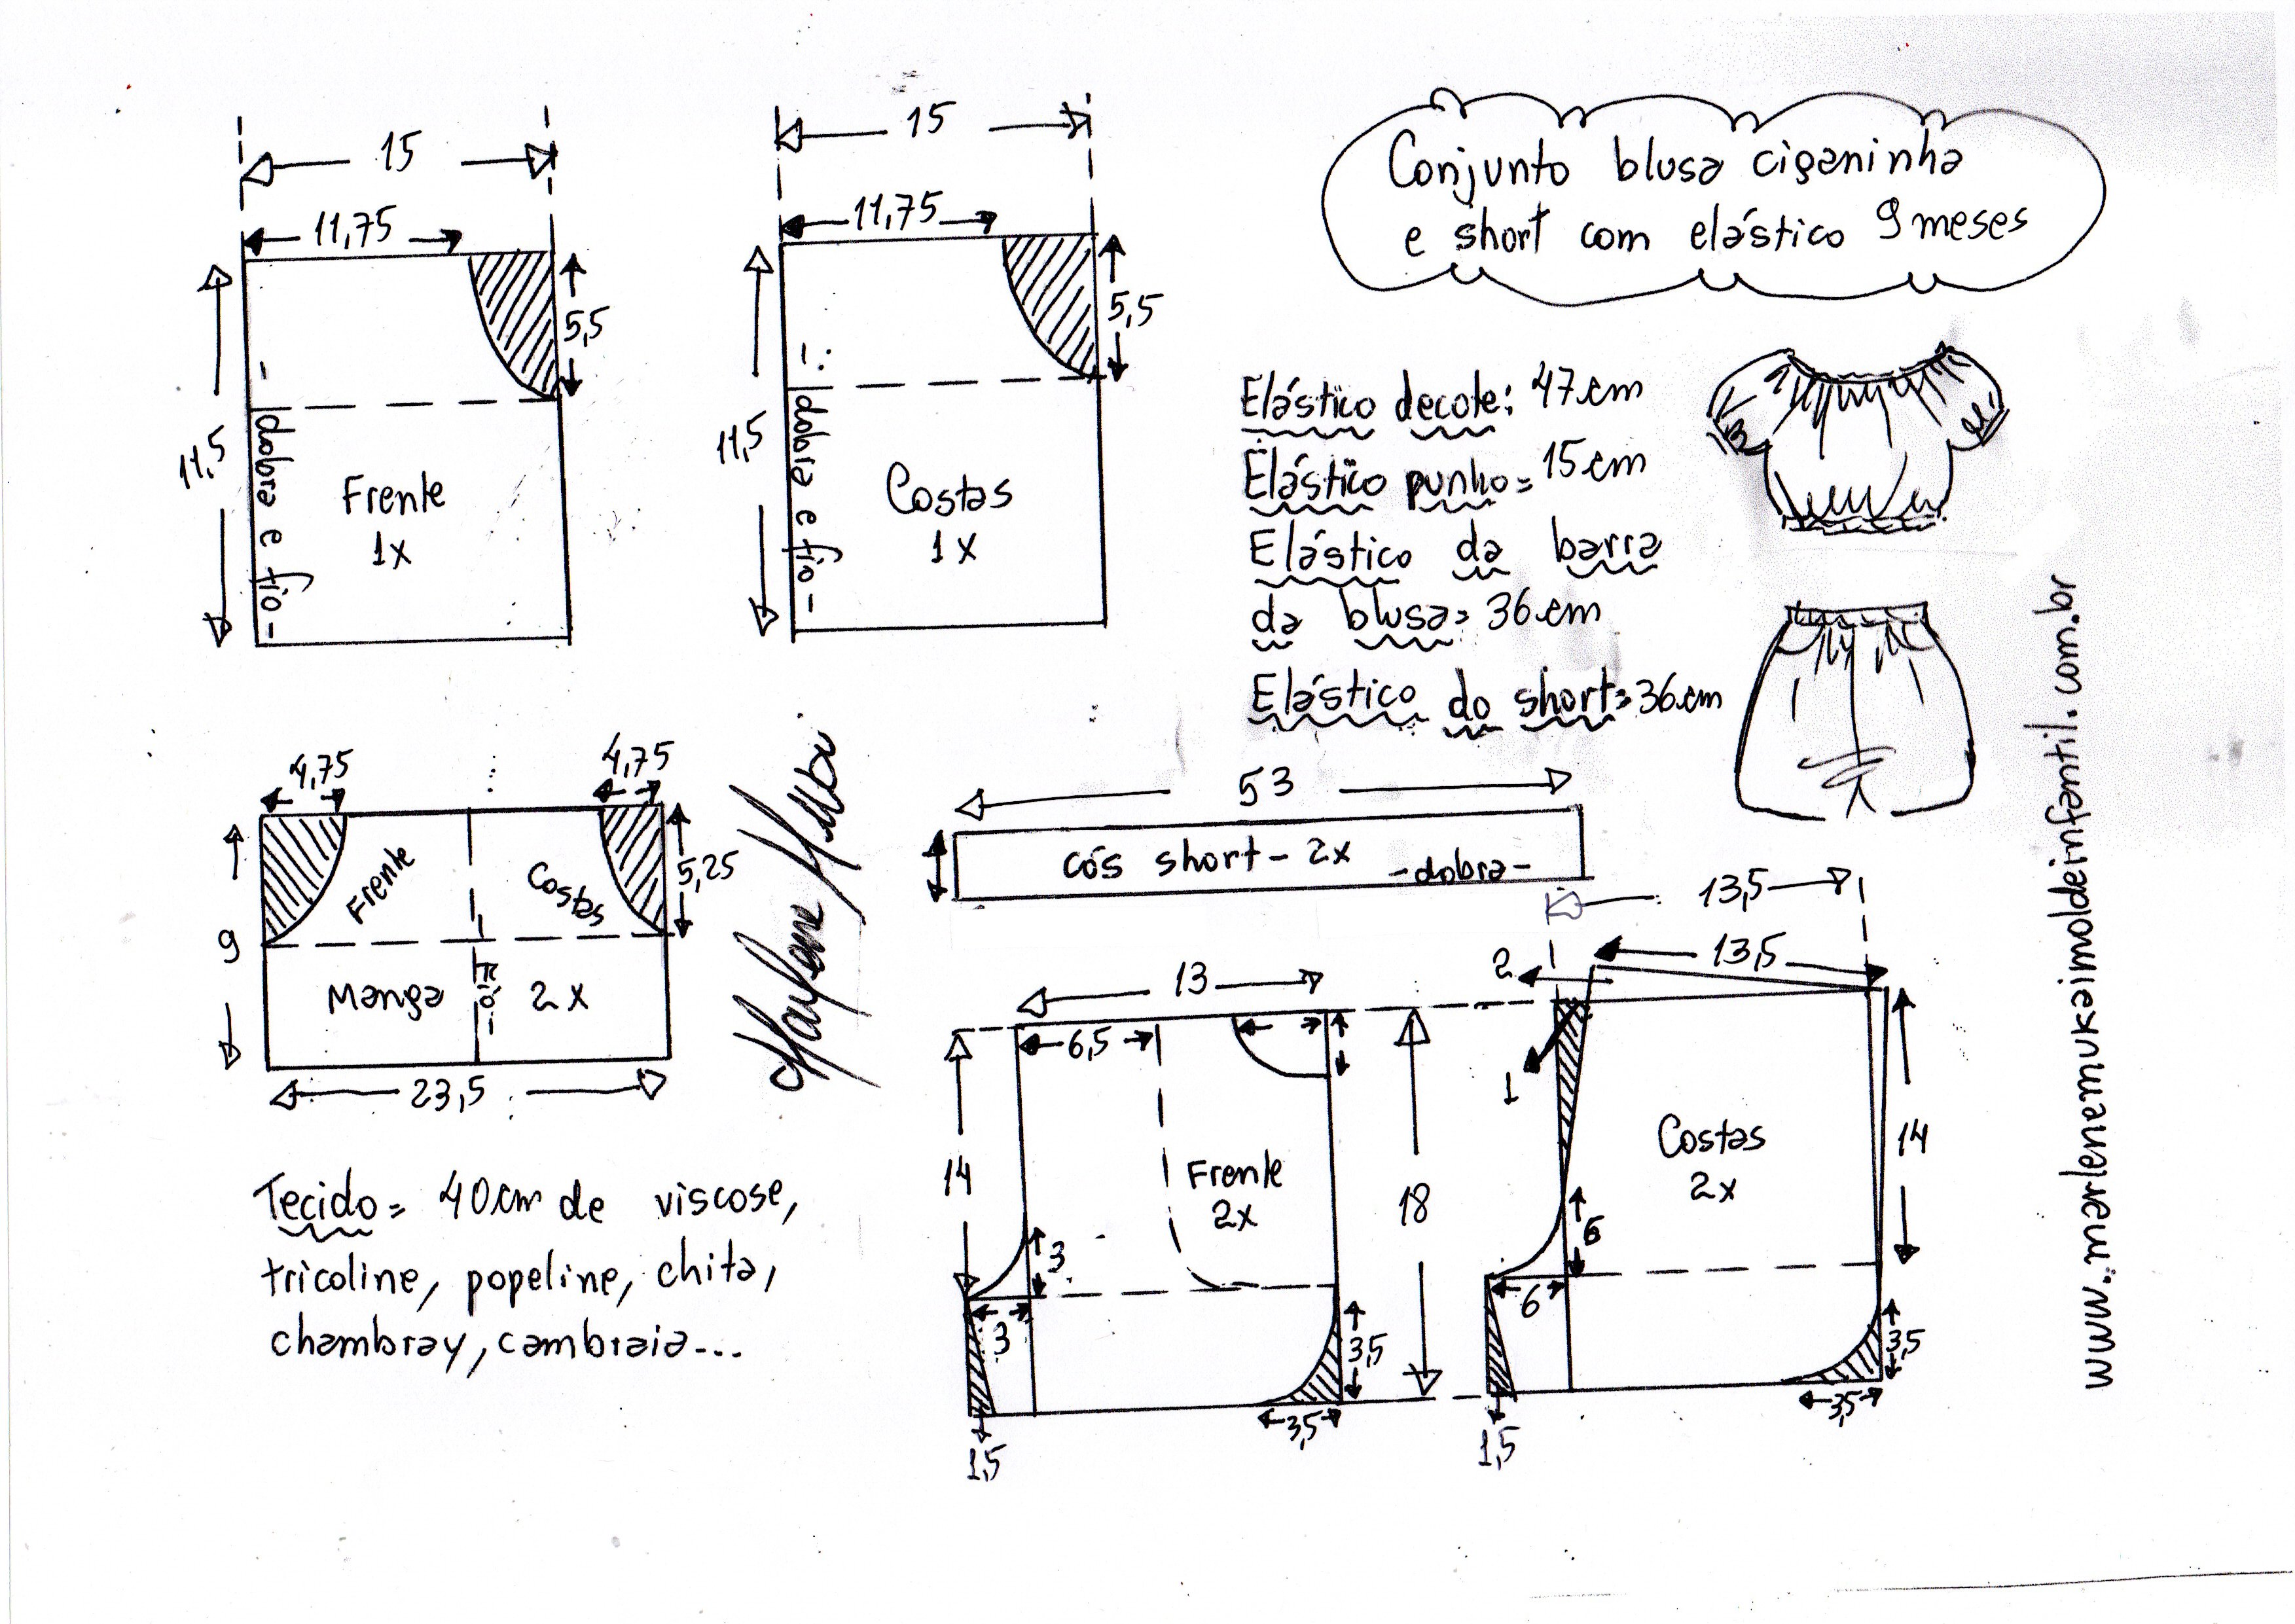 Conjunto blusa ciganinha
e short com elástico 9 meses
15
11,75
11,5
5,5
dobra e fio
Frente
1x
15
11,75
11,5
5,5
dobra e fio
Costas
1x
Elástico decote: 47cm
Elástico punho= 15cm
Elástico da barra
da blusa= 36cm
Elástico do short= 36cm
4,75
4,75
9
5,25
Frente
Costas
Manga
fio
2x
23,5
53
cós short - 2x
-dobra-
13
6,5
14
3
3
Frente
2x
18
3,5
3,5
1,5
13,5
13,5
2
1
Costas
2x
14
6
6
3,5
3,5
1,5
Tecido= 40cm de viscose,
tricoline, popeline, chita,
chambray, cambraia...
www.marlenemukaimoldeinfantil.com.br